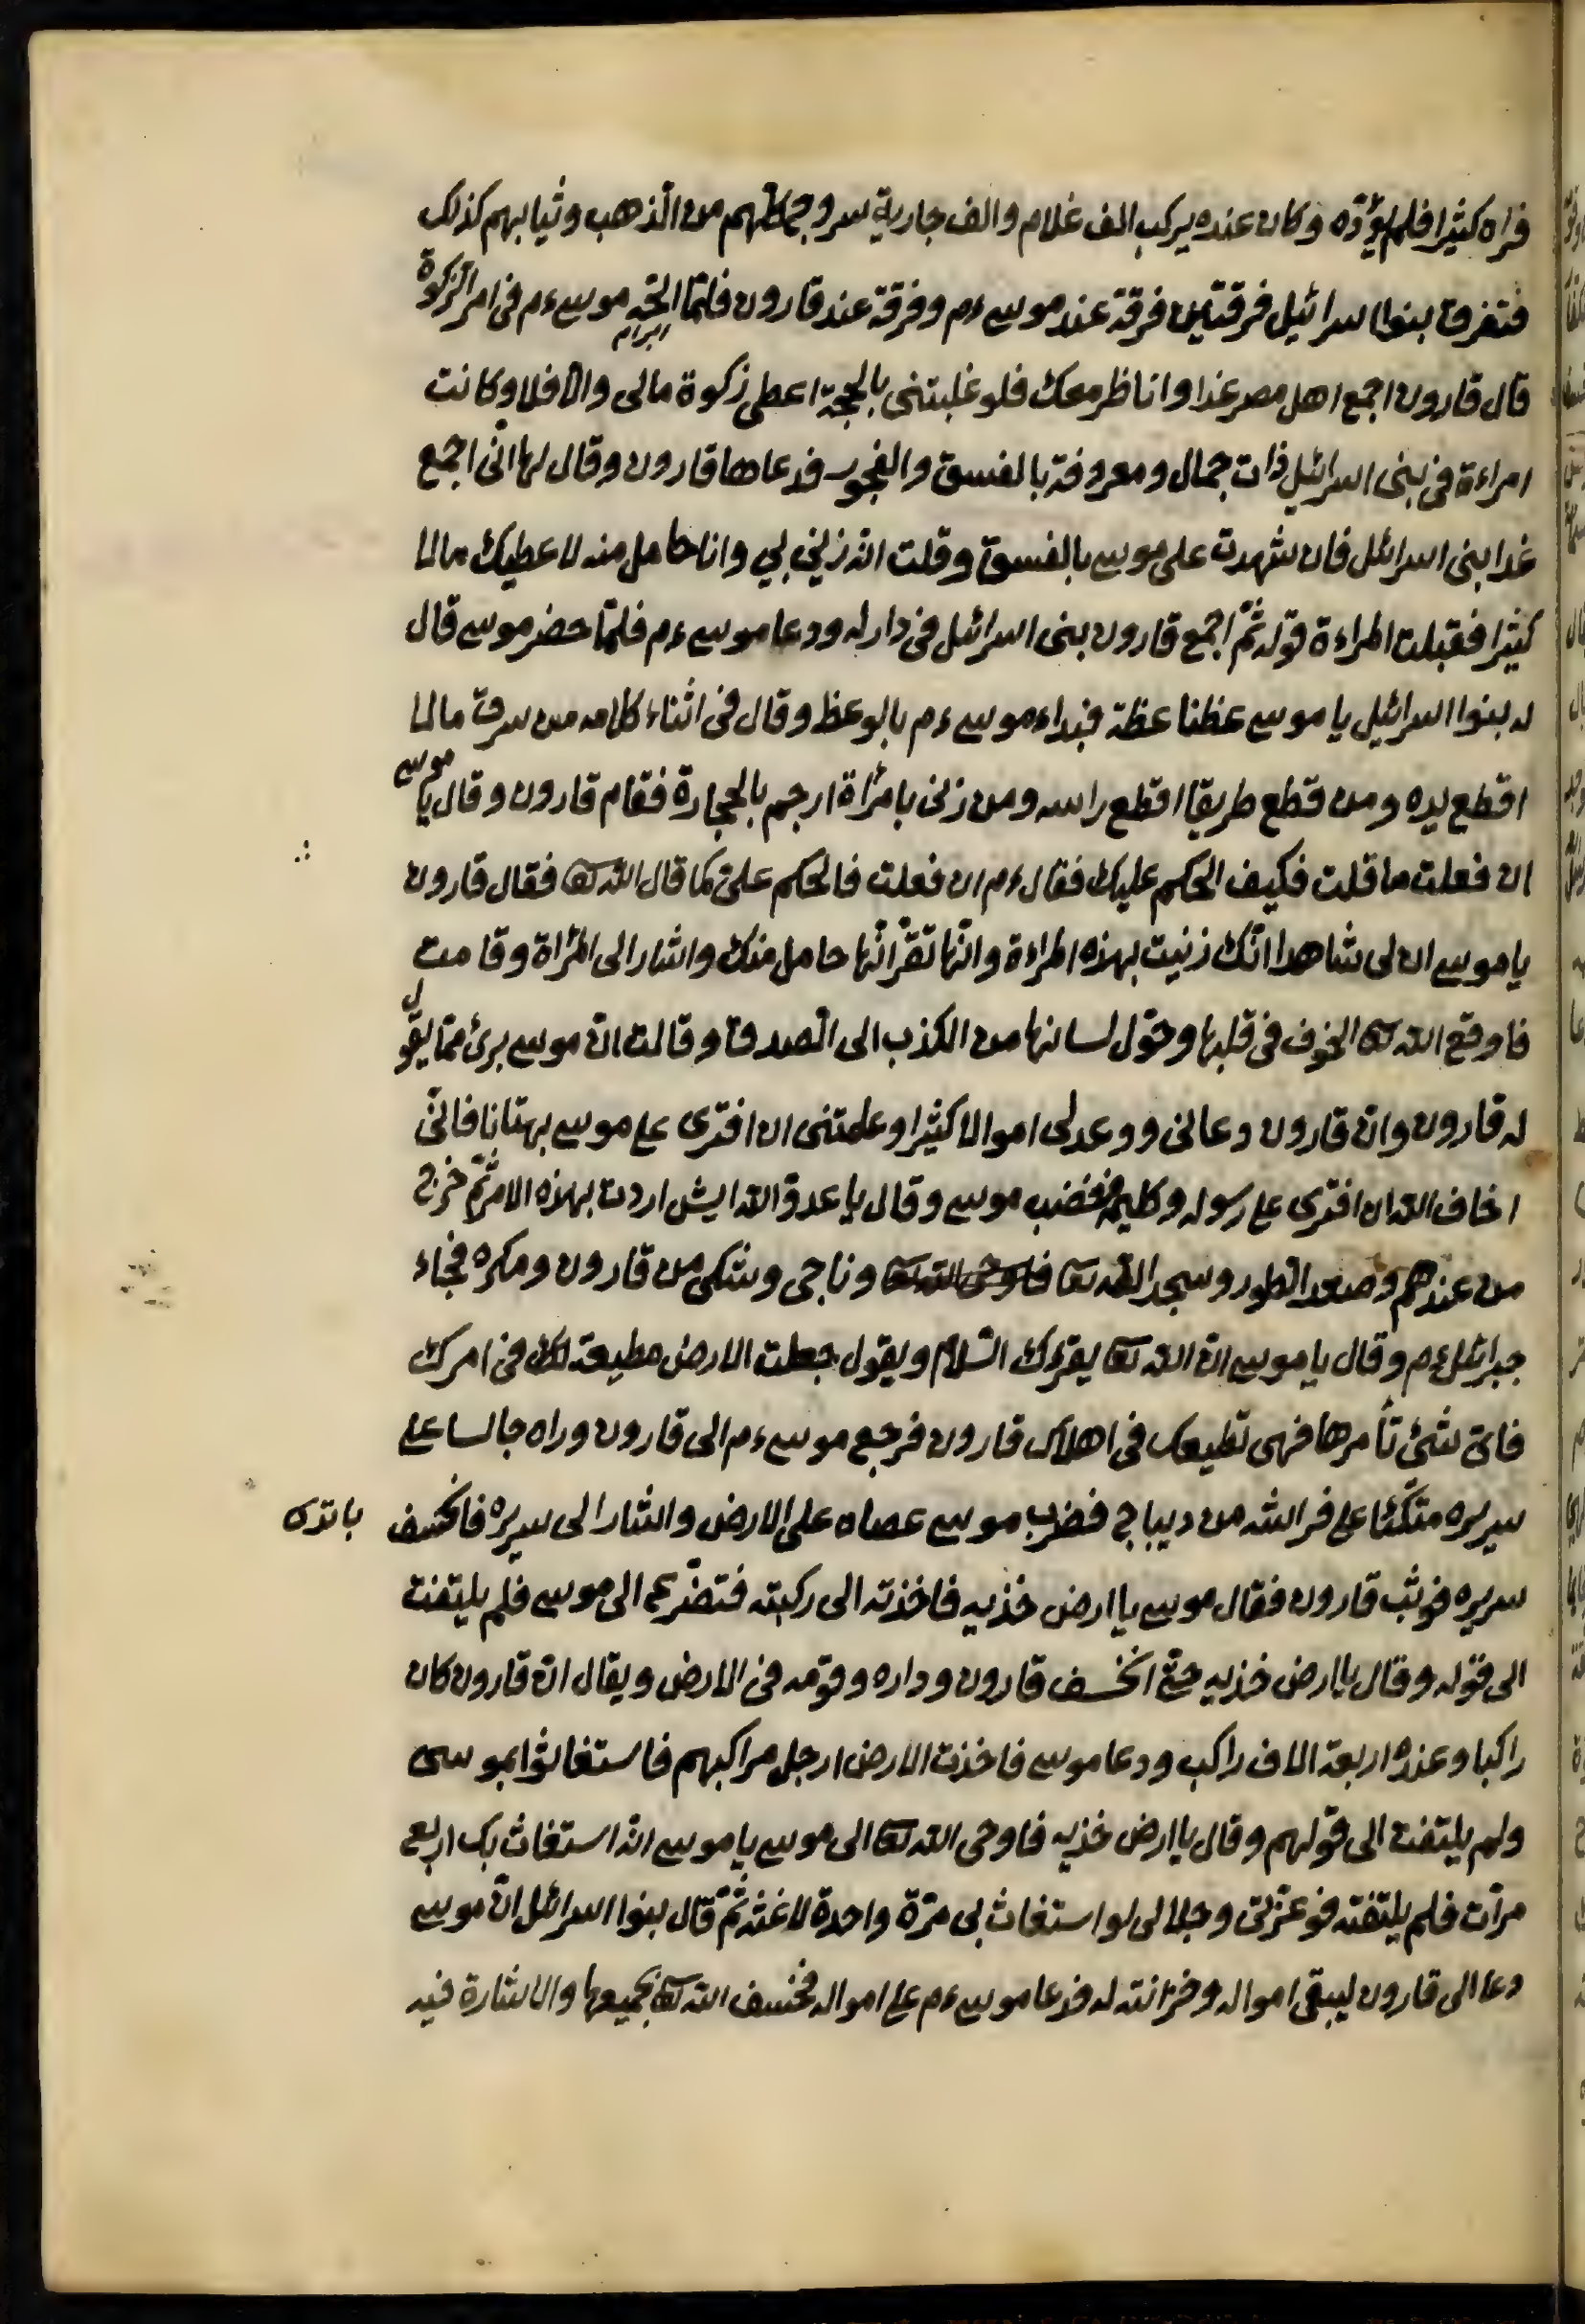 فراه كثيرا فلم يؤدّه وكان عنده يركب الف غلام والف جارية سروجهم من الذهب وثيابهم كذلك
فتفرق بنوا اسرائيل فرقتين فرقة عند موسى ءم وفرقة عند قارون فلمّا الحّ موسى ءم فى امر الزكوة
ابرام
قال قارون اجمع اهل مصر غدا وانا ظر معك فلو غلبتنى بالحجة اعطى زكوة مالى والا فلا وكانت
امراءة فى بنى اسرائيل ذات جمال ومعروفة بالفسق والفجور فدعاها قارون وقال لها انّى اجمع
غدا بنى اسرائل فان شهدت على موسى بالفسق وقلت انه زنى بي وانا حامل منه لاعطيك مالا
كثيرا فقبلت المراءة قوله ثمّ اجمع قارون بنى اسرائل فى دار له ودعا موسى ءم فلمّا حضر موسى قال
له بنوا اسرائيل يا موسى عظنا عظة فبداء موسى ءم بالوعظ وقال فى اثناء كلامه من سرق مالا
اقطع يده ومن قطع طريقا اقطع راسه ومن زنى بامرأة ارجم بالحجارة فقام قارون وقال يا موسى
ان فعلت ما قلت فكيف الحكم عليك فقال ءم ان فعلت فالحكم علىّ كما قال الله تعا فقال قارون
يا موسى ان لى شاهدا انّك زنيت بهذه المراءة وانّها تقرّ انّها حامل منك واشار الى المرأة وقامت
فاوقع الله تعا الخوف فى قلبها وحوّل لسانها من الكذب الى الصدق وقالت انّ موسى برئ ممّا يقول
له قارون وانّ قارون دعانى ووعد لى اموالا كثيرا وعلمتنى ان افترى على موسى بهتانا فانّى
اخاف الله ان افترى على رسوله وكليمه فغضب موسى وقال يا عدوّ الله ايش اردت بهذه الامر ثمّ خرج
من عندهم وصعد الطور وسجد الله تعا فاوحى الله تعا وناجى وشكى من قارون ومكره فجاء
جبرائل ءم وقال يا موسى انّ الله تعا يقرءك السّلام ويقول جعلت الارض مطيعة لك فى امرك
فاىّ شئ تأمرها فهى تطيعك فى اهلاك قارون فرجع موسى ءم الى قارون وراه جالسا على
سريره متّكئا على فراشه من ديباج فضرب موسى عصاه على الارض واشار الى سريره فانخسف
سريره فوثب قارون فقال موسى يا ارض خذيه فاخذته الى ركبته فتضرّع الى موسى فلم يلتفت
الى قوله وقال يا ارض خذيه حتى انخسف قارون وداره وقومه فى الارض ويقال انّ قارون كان
راكبا وعنده اربعة الاف راكب ودعا موسى فاخذت الارض ارجل مراكبهم فاستغاثوا بموسى
ولم يلتفت الى قولهم وقال يا ارض خذيه فاوحى الله تعا الى موسى يا موسى انّه استغاث بك اربع
مرّات فلم يلتفته فوعزّتى وجلالى لو استغاث بى مرّة واحدة لاغثه ثمّ قال بنوا اسرائل انّ موسى
دعا الى قارون ليبقى امواله وخزانته له فدعا موسى ءم على امواله فخسف الله تعا بجميعها والاشارة فيه